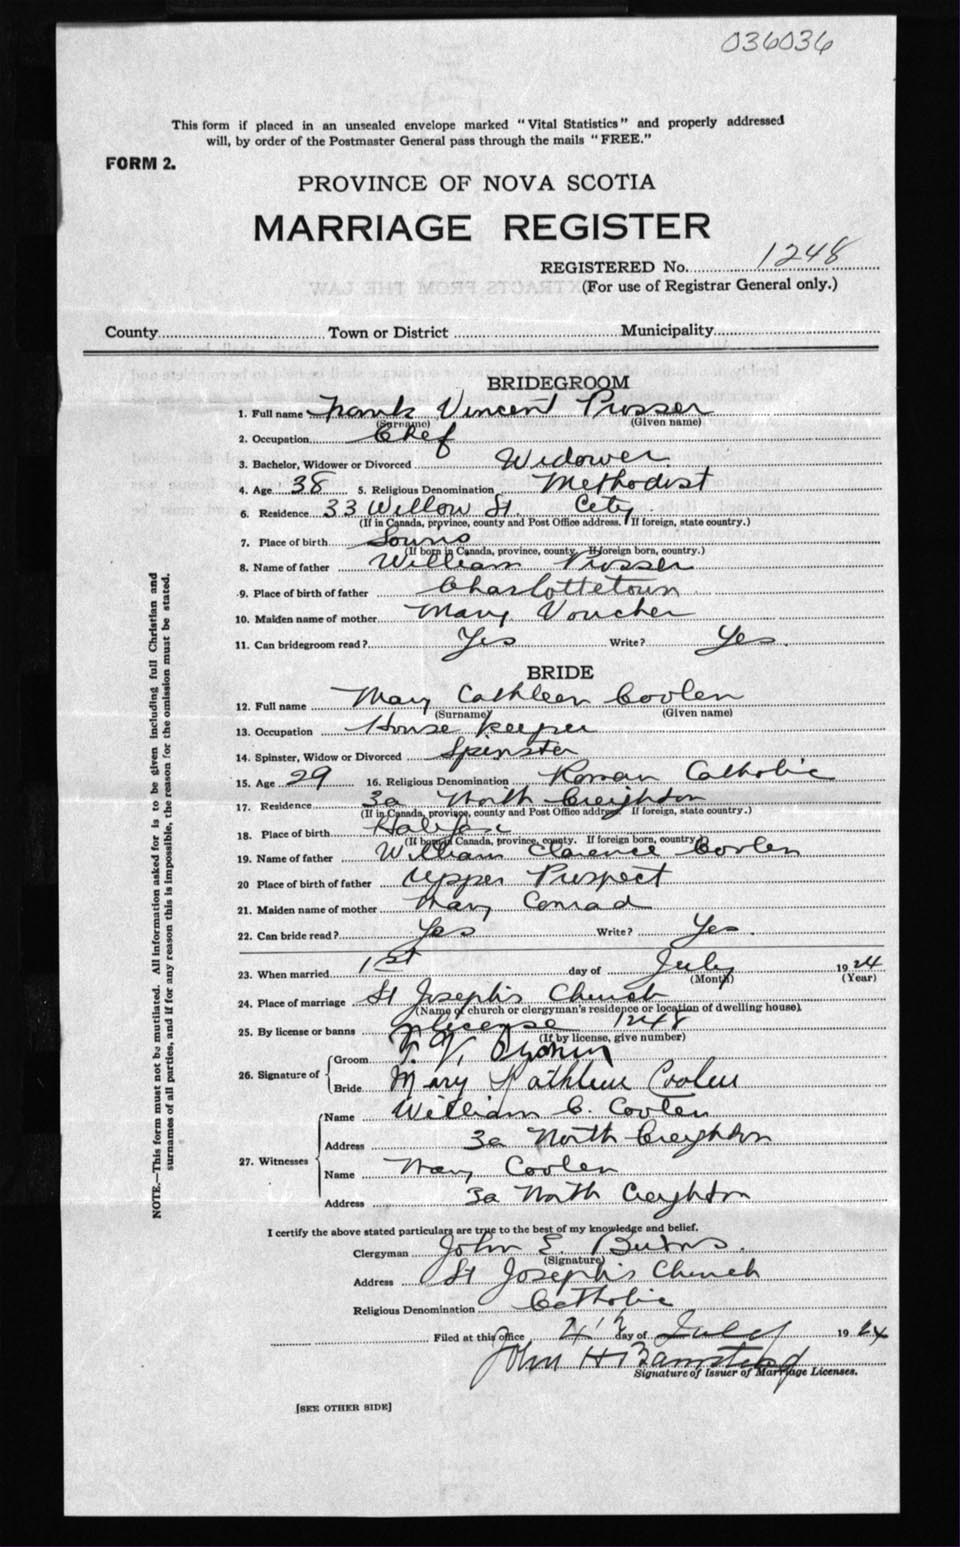 036036
This form if placed in an unsealed envelope marked "Vital Statistics" and properly addressed
will, by order of the Postmaster General pass through the mails "FREE."
FORM 2.
PROVINCE OF NOVA SCOTIA
MARRIAGE REGISTER
REGISTERED No. 1248
(For use of Registrar General only.)
County Town or District Municipality
BRIDEGROOM
1. Full name Frank Vincent Prosser
(Surname) (Given name)
2. Occupation Chef
3. Bachelor, Widower or Divorced Widower
4. Age 38 5. Religious Denomination Methodist
6. Residence 33 Willow St City
(If in Canada, province, county and Post Office address. If foreign, state country.)
7. Place of birth Souris
(If born in Canada, province, county. If foreign born, country.)
8. Name of father William Prosser
9. Place of birth of father Charlottetown
10. Maiden name of mother Mary Voucher
11. Can bridegroom read? Yes Write? Yes
BRIDE
12. Full name Mary Cathleen Coolen
(Surname) (Given name)
13. Occupation House keeper
14. Spinster, Widow or Divorced Spinster
15. Age 29 16. Religious Denomination Roman Catholic
17. Residence 3a North Creighton
(If in Canada, province, county and Post Office address. If foreign, state country.)
18. Place of birth Halifax
(If born in Canada, province, county. If foreign born, country.)
19. Name of father William Clarence Coolen
20 Place of birth of father Upper Prospect
21. Maiden name of mother Mary Conrad
22. Can bride read? Yes Write? Yes.
23. When married 1st day of July 1924
(Month) (Year)
24. Place of marriage St Joseph's Church
(Name of church or clergyman's residence or location of dwelling house)
25. By license or banns License 1248
(If by license, give number)
26. Signature of
Groom F. V.
Bride Mary Kathleen Coolen
27. Witnesses
Name William C. Coolen
Address 3a North Creighton
Name Mary Coolen
Address 3a North Creighton
I certify the above stated particulars are true to the best of my knowledge and belief.
Clergyman John E. Burns.
(Signature)
Address St Joseph's Church
Religious Denomination Catholic
Filed at this office day of July 1924
John H Barnstead
Signature of Issuer of Marriage Licenses.
[SEE OTHER SIDE]
NOTE.—This form must not be mutilated. All information asked for is to be given including full Christian and
surnames of all parties, and if for any reason this is impossible, the reason for the omission must be stated.